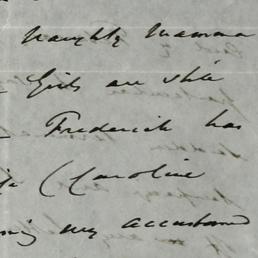 naughty Mamma
Girls are still
Frederick has
(Caroline
my accustomed